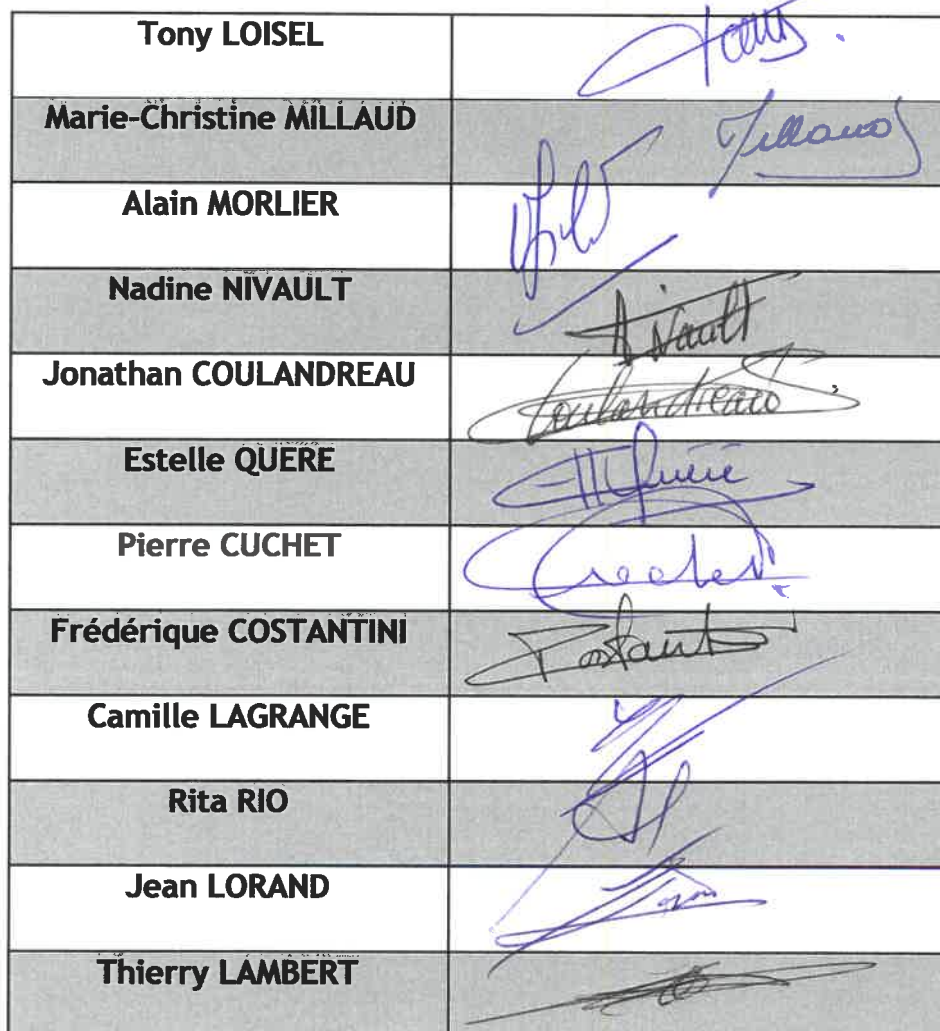 Tony LOISEL
Marie-Christine MILLAUD
Millaud
Alain MORLIER
Nadine NIVAULT
Nivault
Jonathan COULANDREAU
Coulandreau
Estelle QUERE
Quéré
Pierre CUCHET
Cuchet
Frédérique COSTANTINI
Costantini
Camille LAGRANGE
Rita RIO
Jean LORAND
Thierry LAMBERT